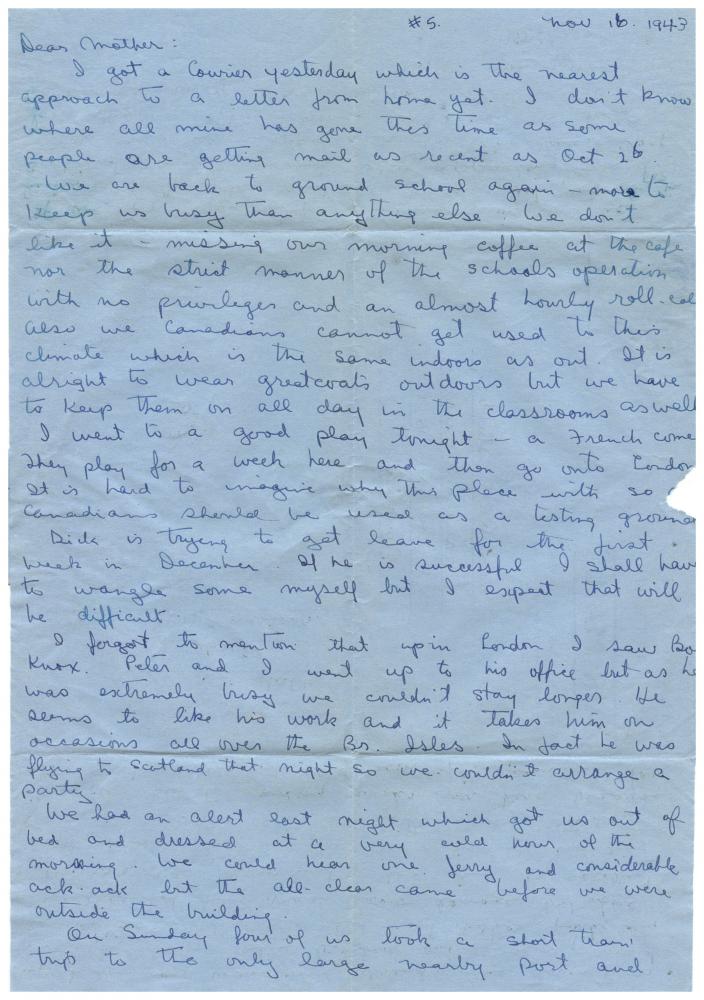 #5. Nov 16. 1943
Dear Mother:
I got a Courier yesterday which is the nearest
approach to a letter from home yet. I don't know
where all mine has gone this time as some
people are getting mail as recent as Oct 26.
We are back to ground school again - more to
keep us busy than anything else. We don't
like it - missing our morning coffee at the cafe
nor the strict manner of the schools operation
with no privileges and an almost hourly roll-cal
Also we Canadians cannot get used to this
climate which is the same indoors as out. It is
alright to wear greatcoats outdoors but we have
to keep them on all day in the classrooms as well
I went to a good play tonight - a French come
They play for a week here and then go onto London
It is hard to imagine why this place with so
Canadians should be used as a testing groun
Dick is trying to get leave for the first
week in December. If he is successful I shall hav
to wangle some myself but I expect that will
be difficult
I forgot to mention that up in London I saw Bo
Knox. Peter and I went up to his office but as he
was extremely busy we couldn't stay longer. He
seems to like his work and it takes him on
occasions all over the Br. Isles. In fact he was
flying to Scotland that night so we couldn't arrange a
party.
We had an alert last night which got us out of
bed and dressed at a very cold hour of the
morning. We could hear one Jerry and considerable
ack-ack but the all-clear came before we were
outside the building.
On Sunday four of us took a short train
trip to the only large nearby port and